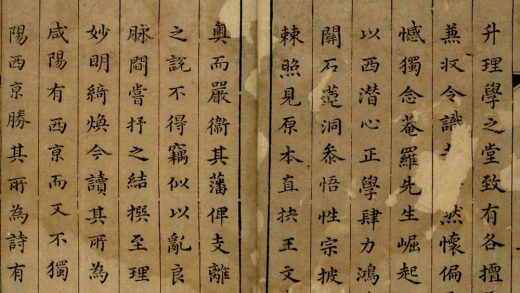 升理學之堂致有各擅
兼収令識然懷偏
憾獨念菴羅先生崛起
以西潜心正學肆力鴻
闢石蓮洞叅悟性宗披
棘照見原本直抉王文
奥而嚴衛其藩俾支離
之說不得竊似以亂良
脉間嘗抒之結撰至理
妙明綺煥今讀其所為
咸陽有西京而又不獨
陽西京勝其所為詩有